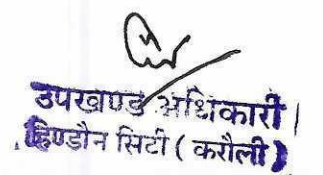 उपखण्ड अधिकारी |
हिण्डौन सिटी ( करौली )